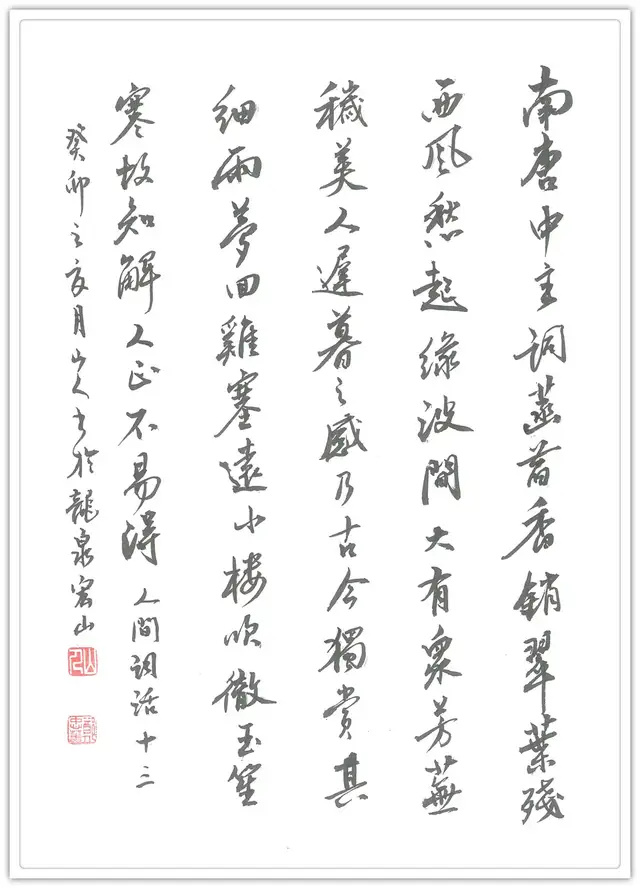 南唐中主詞菡萏香銷翠葉殘
西風愁起綠波間大有眾芳蕪
穢美人遲暮之感乃古今獨賞其
細雨夢回雞塞遠小樓吹徹玉笙
寒故知解人正不易得 人間詞話十三
癸卯之亥月山人書於龍泉山
山人